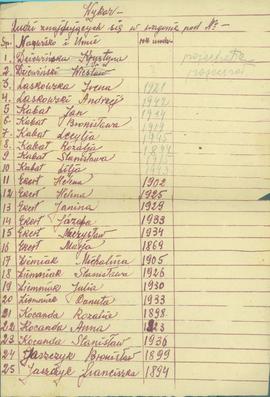 Wykaz
Ludzi znajdujących się w wagonie pod №
Lp. Nazwisko i Imię rok urodz.
1. Krystyna
2. Wiesław
3. Laskowska Irena 1921
4. Laskowski Andrzej
5. Kabat Jan
6. Kabat Bronisława
7. Kabat Cecylia
8. Kabat Rozalia
9. Kabat Stanisława
10 Kabat
11 Ekert Helena 1902
12 Ekert Helina 1925
13 Ekert Janina 1929
14 Ekert Józefa 1933
15 Ekert Mieczysław 1934
16 Ekert Marja 1869
17 Ziemiak Michalina 1905
18 Ziemniak Stanisława 1926
19 Ziemniak Julia 1930
20 Ziemniak Danuta 1933
21 Kocanda Rozalia 1898
22 Kocanda Anna
23 Kocanda Stanisław 1936
24 Jaszczyk Bronisław 1899
25 Jaszczyk Franciszka 1894